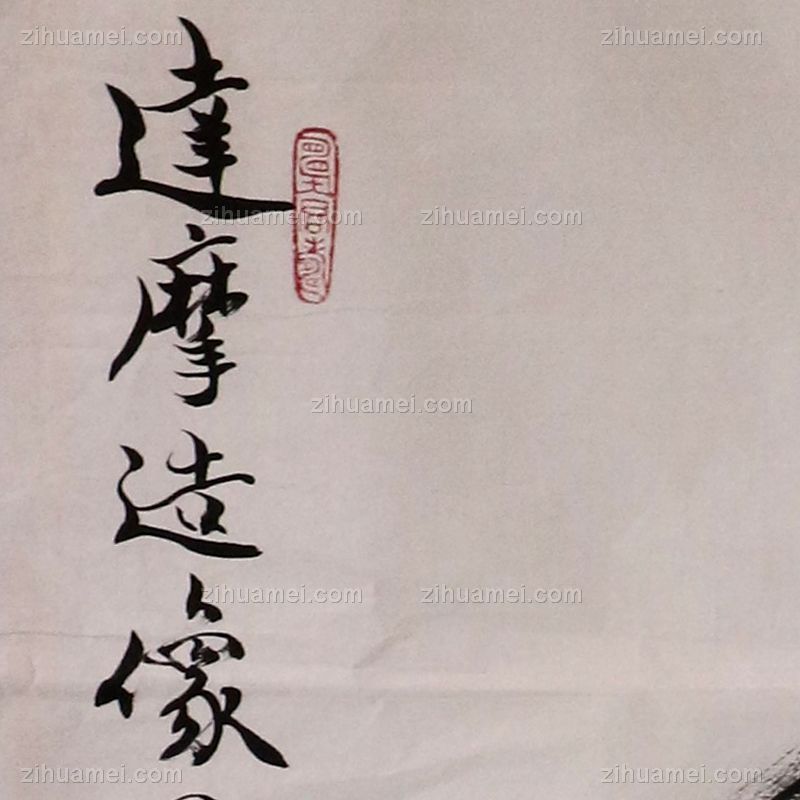 達摩造像
zihuamei.com zihuamei.com
zihuamei.com zihuamei.com
zihuamei.com
zihuamei.com zihuamei.com
zihuamei.com zihuamei.com